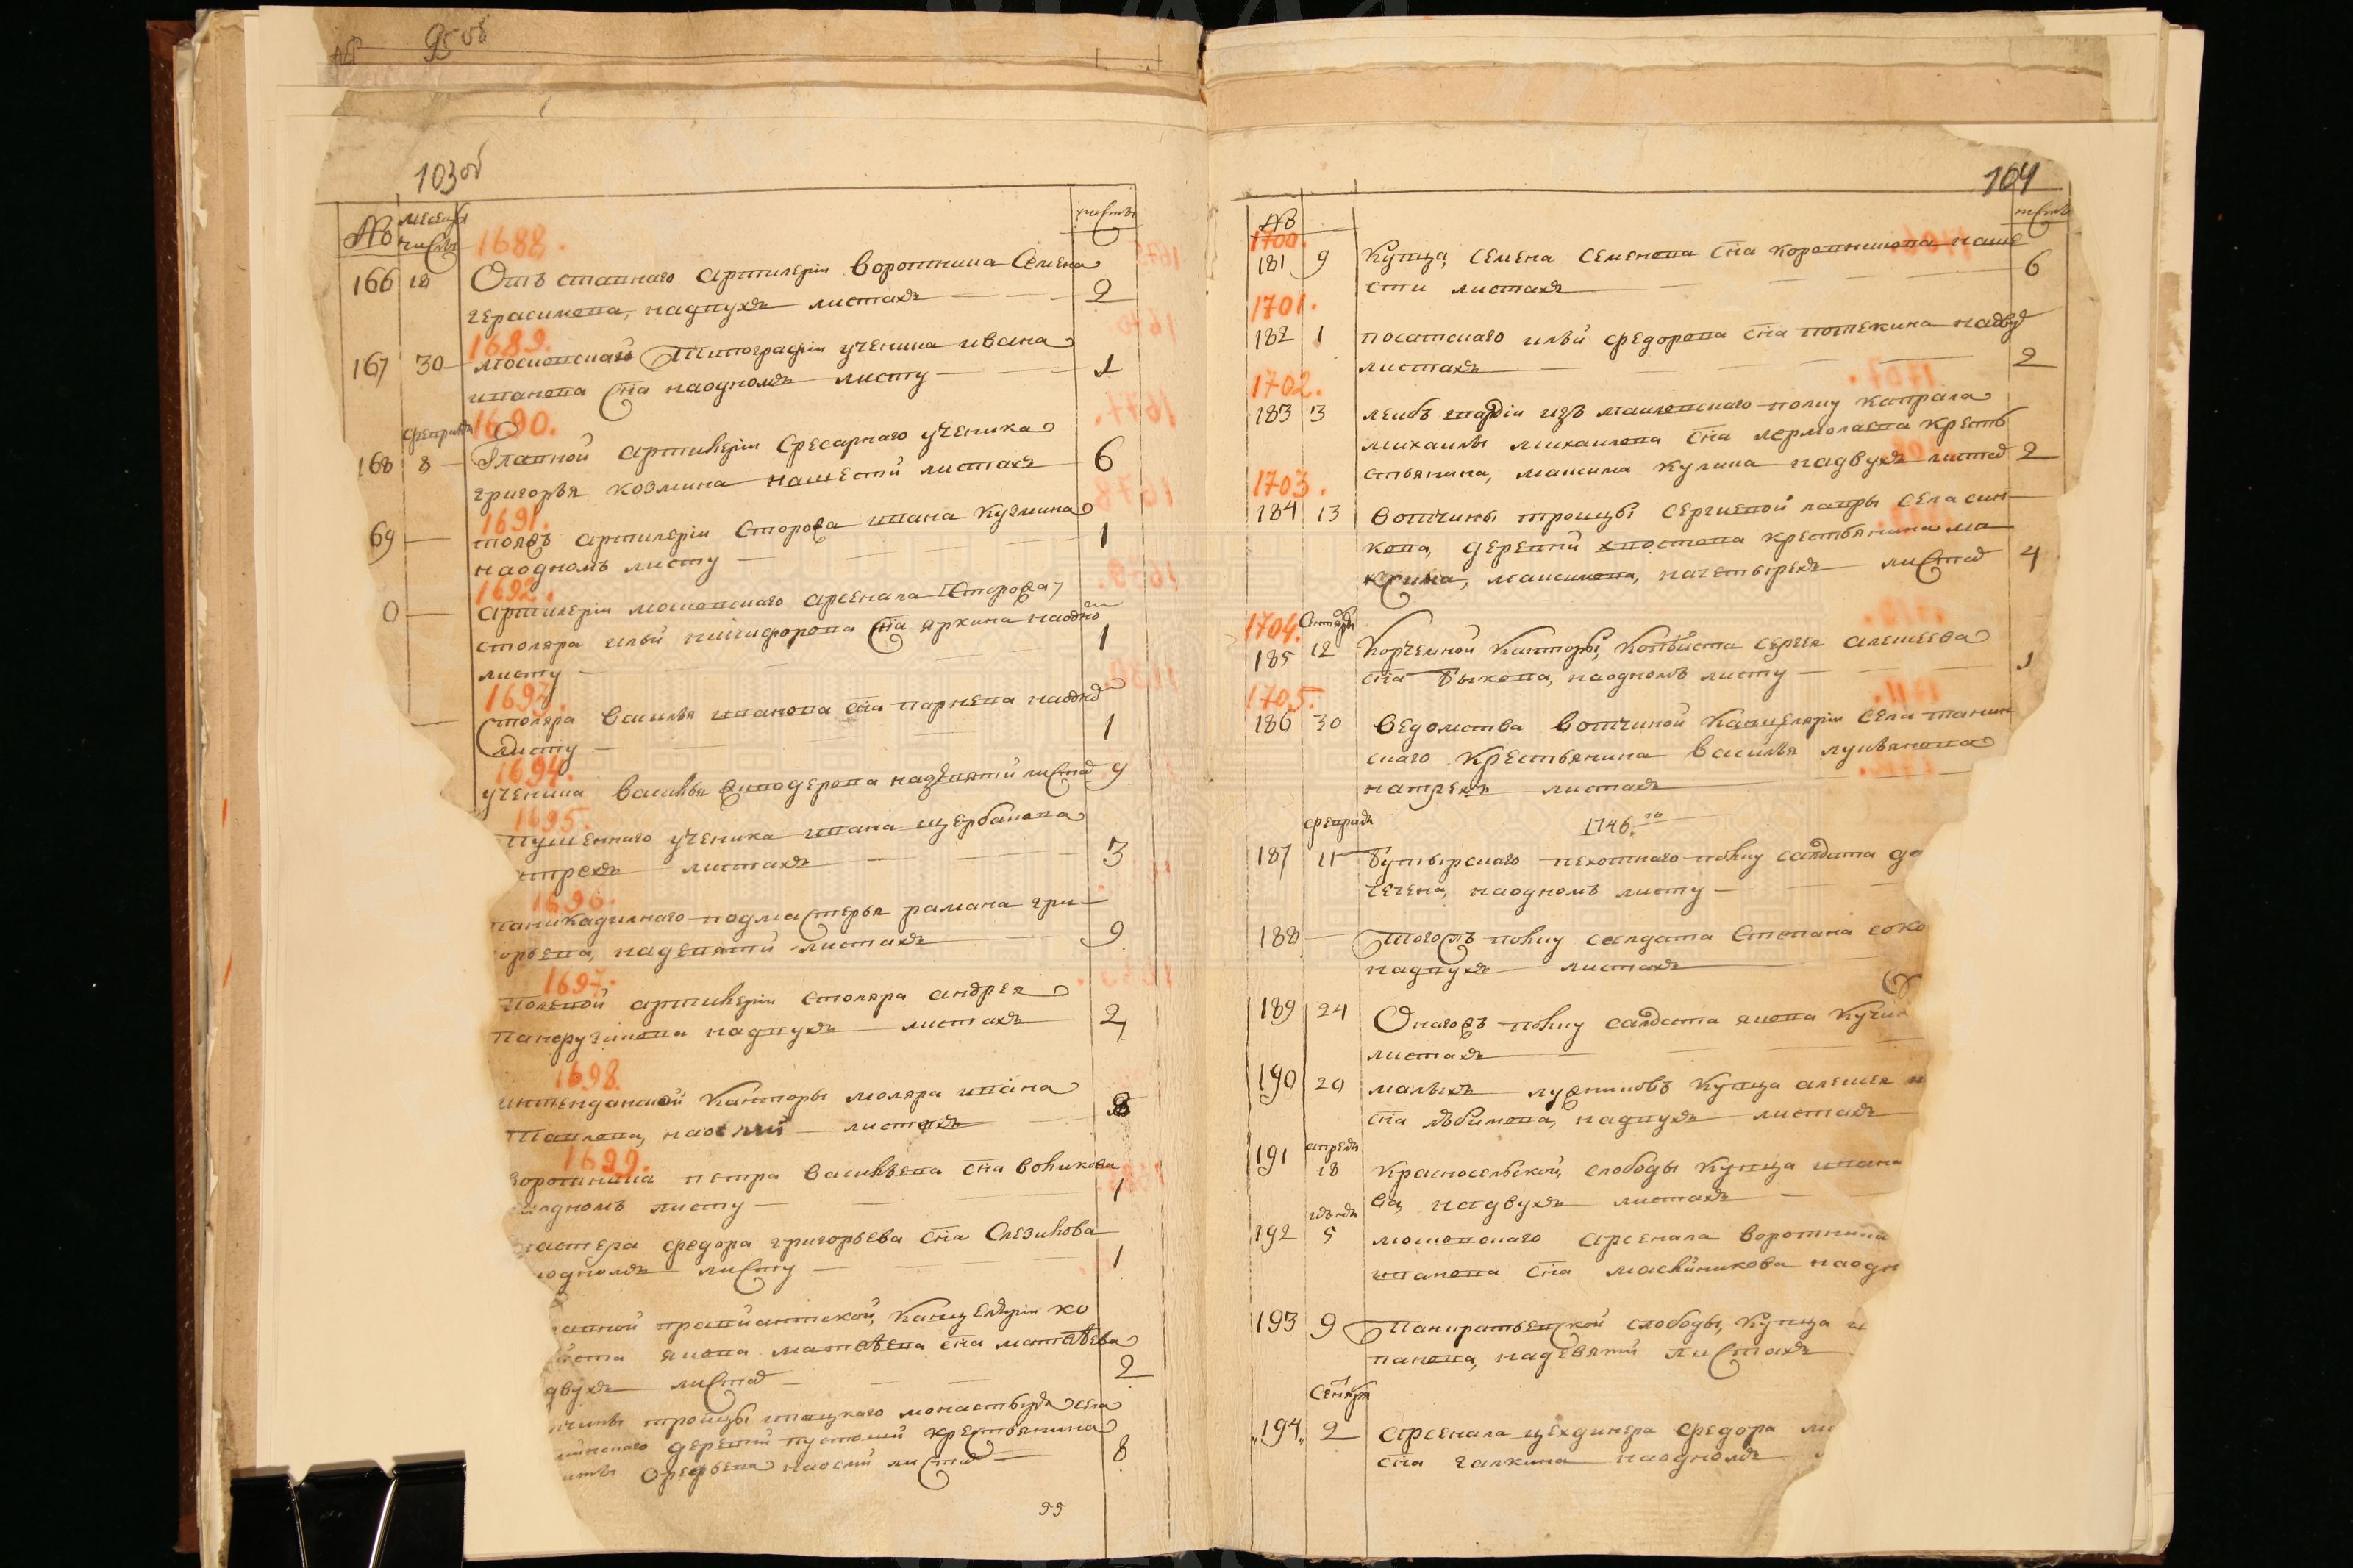 95 об
№
103 об
№ месецы числы листы
1688.
166 18 Отъ ставнаго артилерiи воротника Семена
герасимова, надвухъ листахъ 2
1689.
167 30 московской Типографiи ученика ивана
иванова сна наодномъ листу 1
февраля 1690.
168 8 Главной артилерiи слесарнаго ученика
григорья козмина нашести листахъ 6
1691.
69 тояжъ артилерiи Сторожа ивана Кузмина
наодномъ листу 1
1692.
0 артилерiи московскаго арсенала Сторожа
столяра ильи никифорова сна яркина наодно
листу 1
1693.
Столяра василья иванова сна парнева наодно
листу 1
1694.
ученика василья надевяти листа 9
1695.
пушечнаго ученика ивана щербакова
трехъ листахъ 3
1696.
паникадилнаго подмастерья рамана гри
орьева, надевяти листахъ 9
1697.
полевой артилерiи столяра андрея
надвухъ листахъ 2
1698.
интенданской Канторы моляра ивана
павлова, наосми листахъ 8
1699.
воротника петра васильева сна воликова
наодномъ листу 1
мастера федора григорьева сна Слезикова
одномъ листу 1
авной правиантской, Канцелярiи ко
иста якова матвѣева сна матвѣева
двухъ листа 2
чины троицы ипацкаго монастыря села
деревни крестьянина
наосми листа 8
99
104
№ листы
1700.
181 9 Купца, семена семенова сна коровникова наше
сти листахъ 6
1701.
182 1 посатскаго ильи федорова сна потекина надву
листахъ 2
1702.
183 13 леибъ гвардiи измаиловскаго полку капрала
михаилы михаилова сна лермолаева кресть
стьянина, максима кулика надвухъ листа 2
1703.
184 13 вотчины троицы сергиевой лавры села син
кова, деревни хвостова крестьянина ма
ксима, максимова, начетырехъ листа 4
1704. Сентября
185 12 Корчемной Канторы, Копѣиста сергея алексеева
сна быкова, наодномъ листу 1
1705.
186 30 ведомства вотчиной Канцелярiи села танин
скаго крестьянина василья лукьянова
натрехъ листахъ
февраля 1746. го
187 11 бутырскаго пехотнаго полку салдата
чечена, наодномъ листу
188 Тогожъ полку салдата Степана соко
надвухъ листахъ
189 24 Онагожъ полку салдата якова Кучи
листахъ
190 20 малыхъ лужниковъ Купца алексея
сна лѣбимова, надвухъ листахъ
апреля
191 18 Красносельской, слободы Купца ивана
ва, надвухъ листахъ
192 5 московскаго арсенала воротника
иванова сна маслиникова наодн
193 9 Панкратьевской слободы, Купца и
панова, надевяти листахъ
Сентября
194 2 арсенала цехдинера федора
сна галкина наодномъ